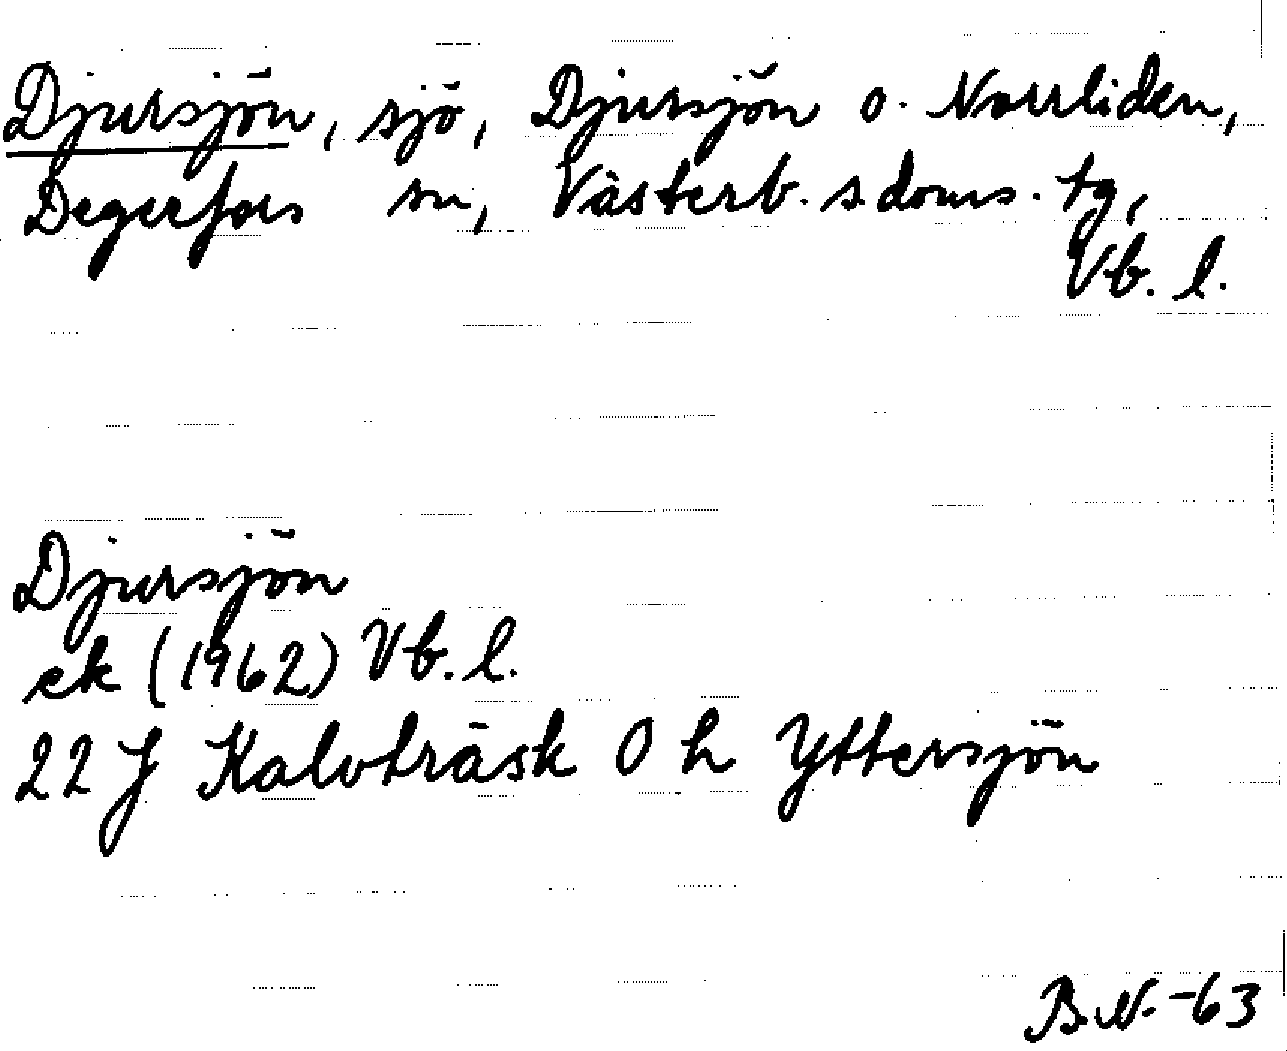 Djursjön, sjö, Djursjön o. Norrliden,
Degerfors sn, Västerb. s. doms. tg,
Vb. l.
Djursjön
ek (1962) Vb. l.
22 J Kalvträsk 0 h Yttersjön
B.N. -63